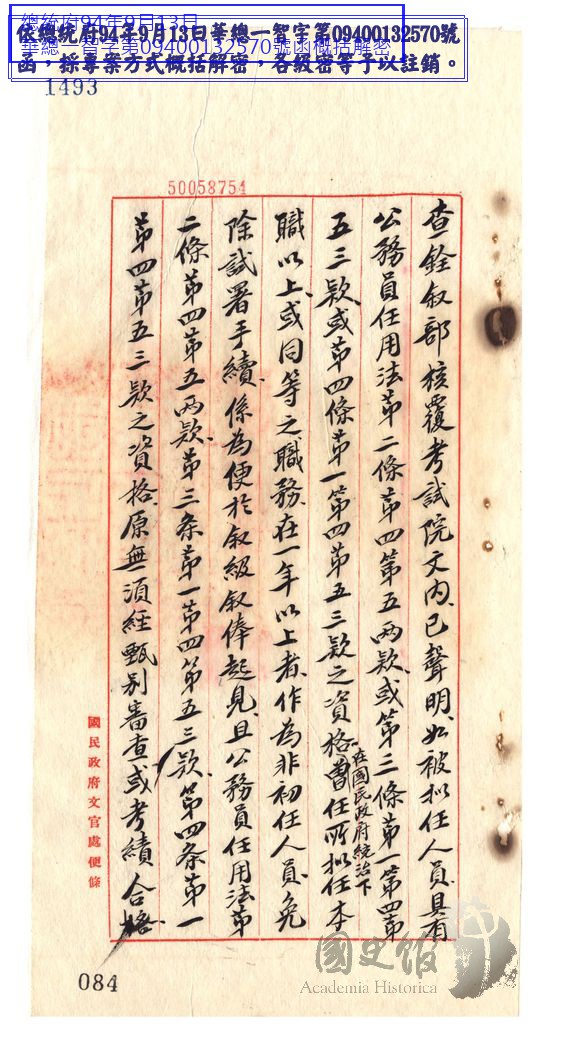 總統府94年9月13日
華總一智字第09400132570號函概括解密
依總統府94年9月13日華總一智字第09400132570號
函，採專案方式概括解密，各級密等予以註銷。
1493
50058754
查銓敘部核覆考試院文內、已聲明、如被拟任人員、具有
公務員任用法第二條第四第五兩款、或第三條第一第四第
五三款、或第四條第一第四第五三款之資格、曾在國民政府統治下任所拟任本
職以上、或同等之職務、在一年以上者、作為非初任人員、免
除試署手續、係為便於叙級叙俸起見、且公務員任用法第
二條第四第五兩款、第三条第一第四第五三款、第四条第一
第四第五三款之資格、原無須經甄别審查或考績合格、
國民政府文官處便條
084
國史館
Academia Historica